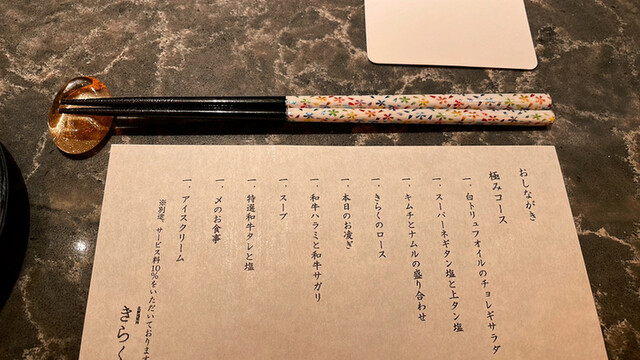 おしながき
極みコース
一、白トリュフオイルのチョレギサラダ
一、スーパーネギタン塩と上タン塩
一、キムチとナムルの盛り合わせ
一、きらくのロース
一、本日のお凌ぎ
一、和牛ハラミと和牛サガリ
一、スープ
一、特選和牛タレと塩
一、〆のお食事
一、アイスクリーム
※別途、サービス料10％をいただいております
きらく